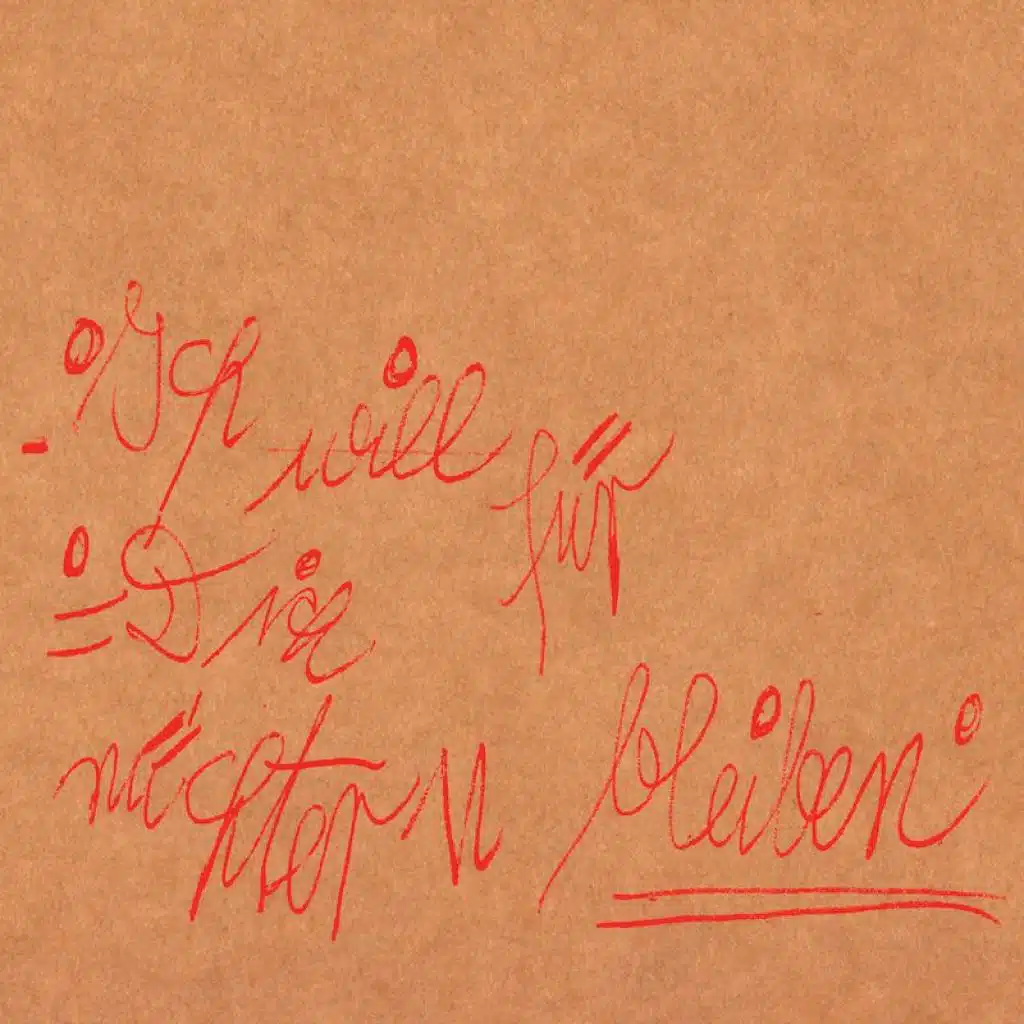 Ich will für
Die
nüchtern bleiben